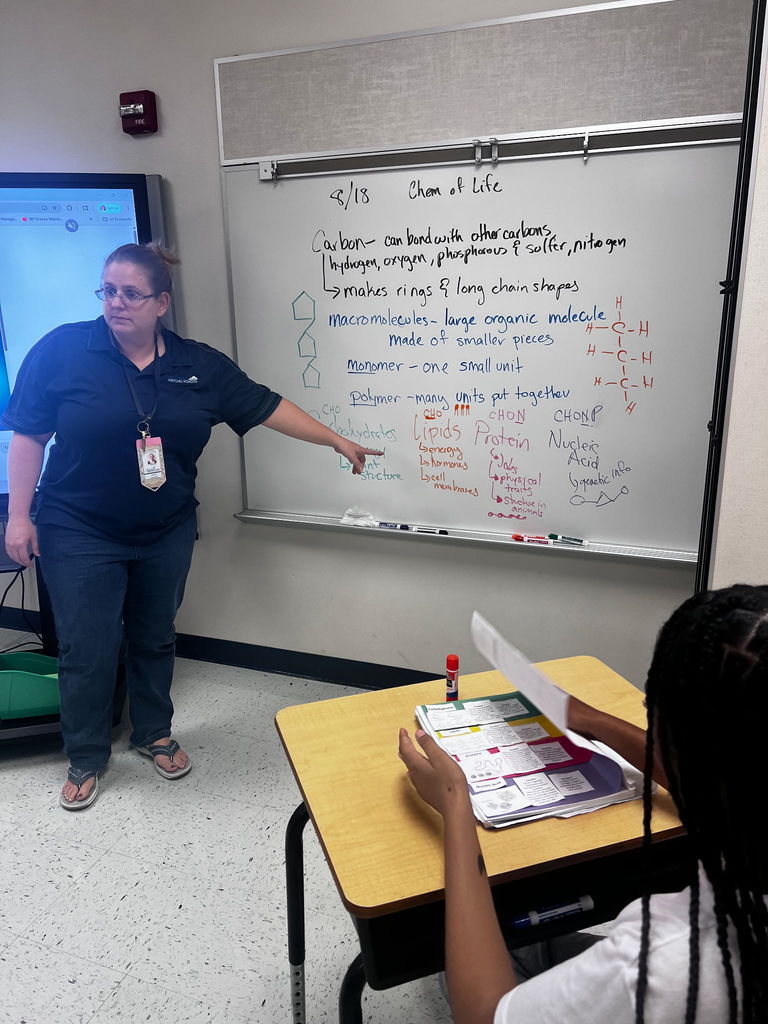 FIRE
8/18 Chem of Life
Carbon- can bond with other carbons,
hydrogen, oxygen, phosphorous & sulfer, nitrogen
makes rings & long chain shapes
macromolecules- large organic molecule
made of smaller pieces
monomer - one small unit
polymer - many units put together
H
H-C-H
H-C-H
H-C-H
H
CHO
CHO
CHON
CHONP
Lipids
Protein
Nucleic
Acid
structure
energy
hormones
cell
membranes
physical
traits
structure in
animals
genetic info
VIRTUAL SCHOOL
Carbohydrates
Nucleic Acid